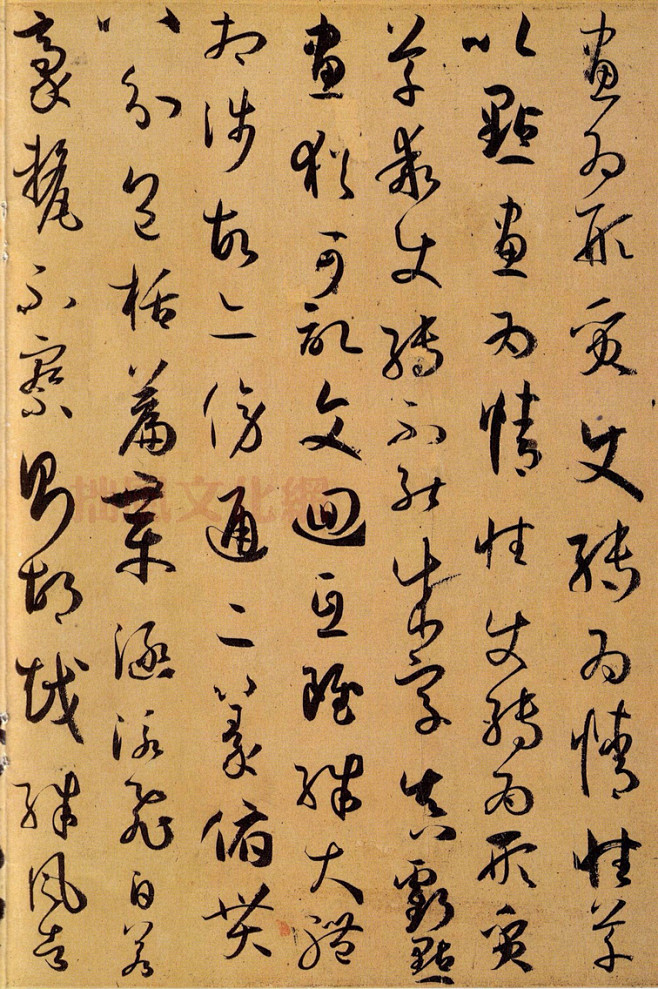 畫為形質使轉為情性草
以點畫為情性使轉為形質
草乖使轉不能成字真虧點
畫猶可記文迴互雖殊大體
相涉故亦傍通二篆俯貫
八分包括篇章涵泳飛白若
豪氂不察則胡越殊風者
拙風文化網